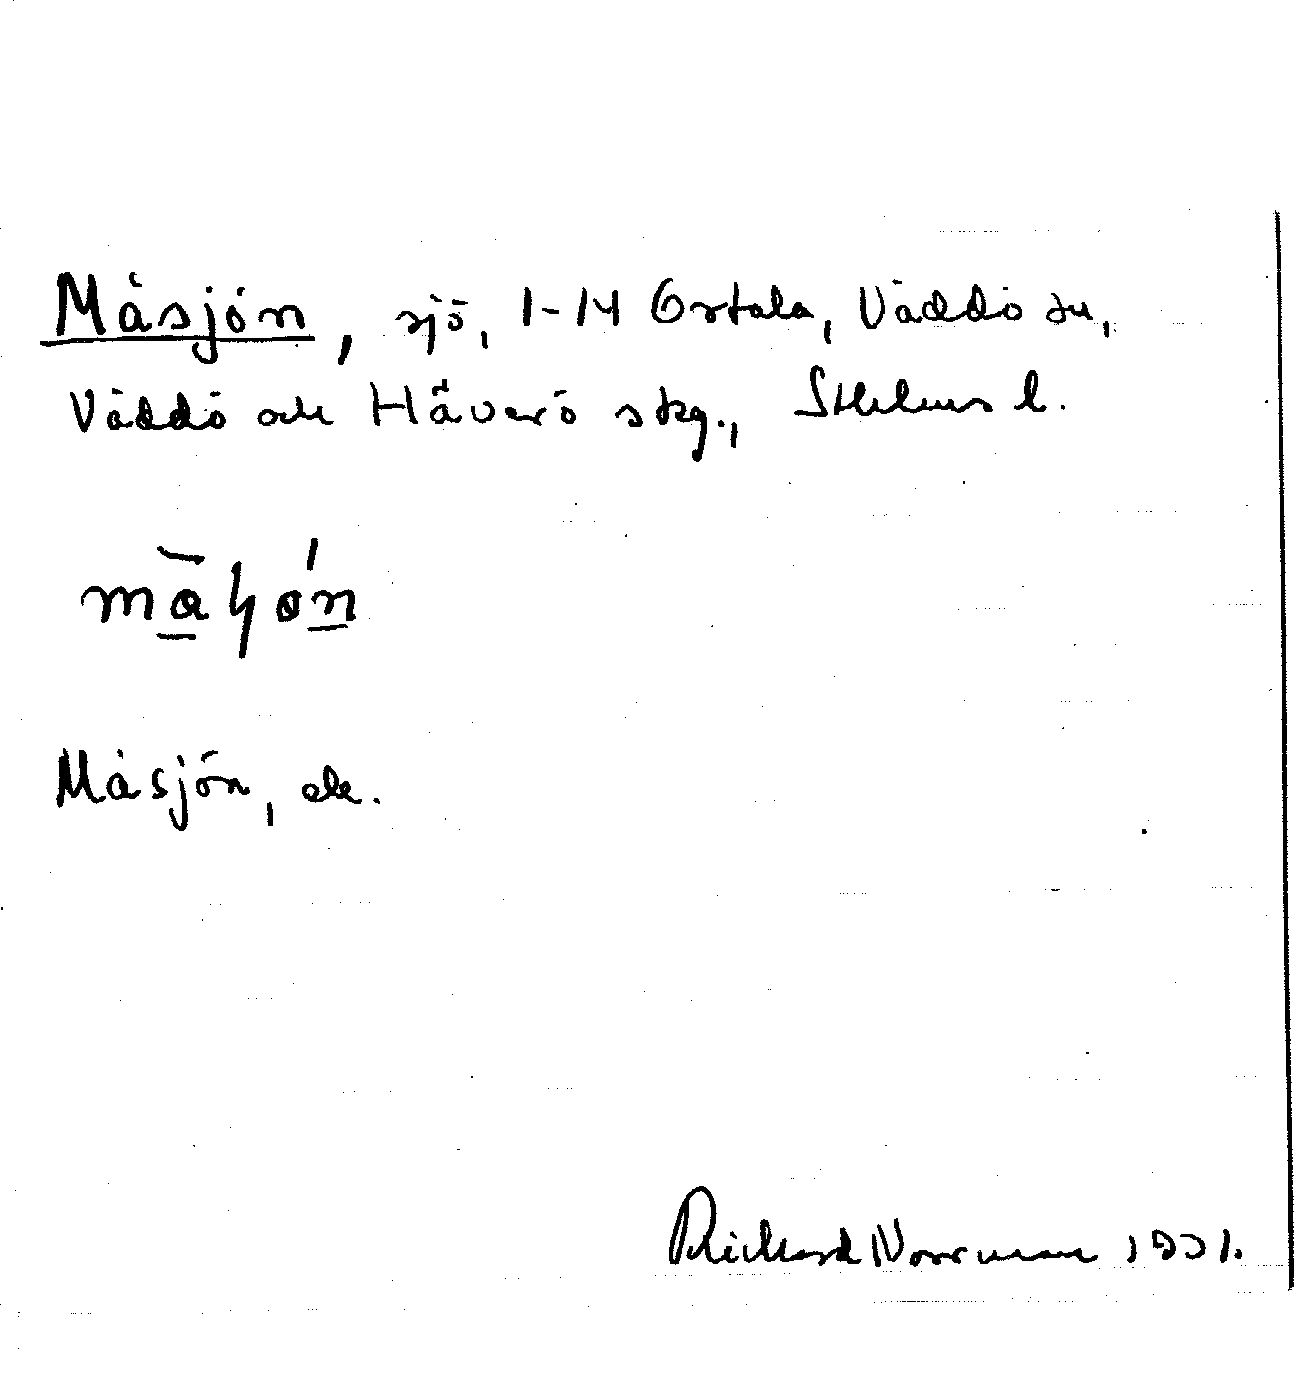 Måsjön, sjö, 1-14 Ortala, Väddö sn,
Väddö och Häverö skg., Sthlms l.
Måsjön, ek.
Rickard Norrman 1931.